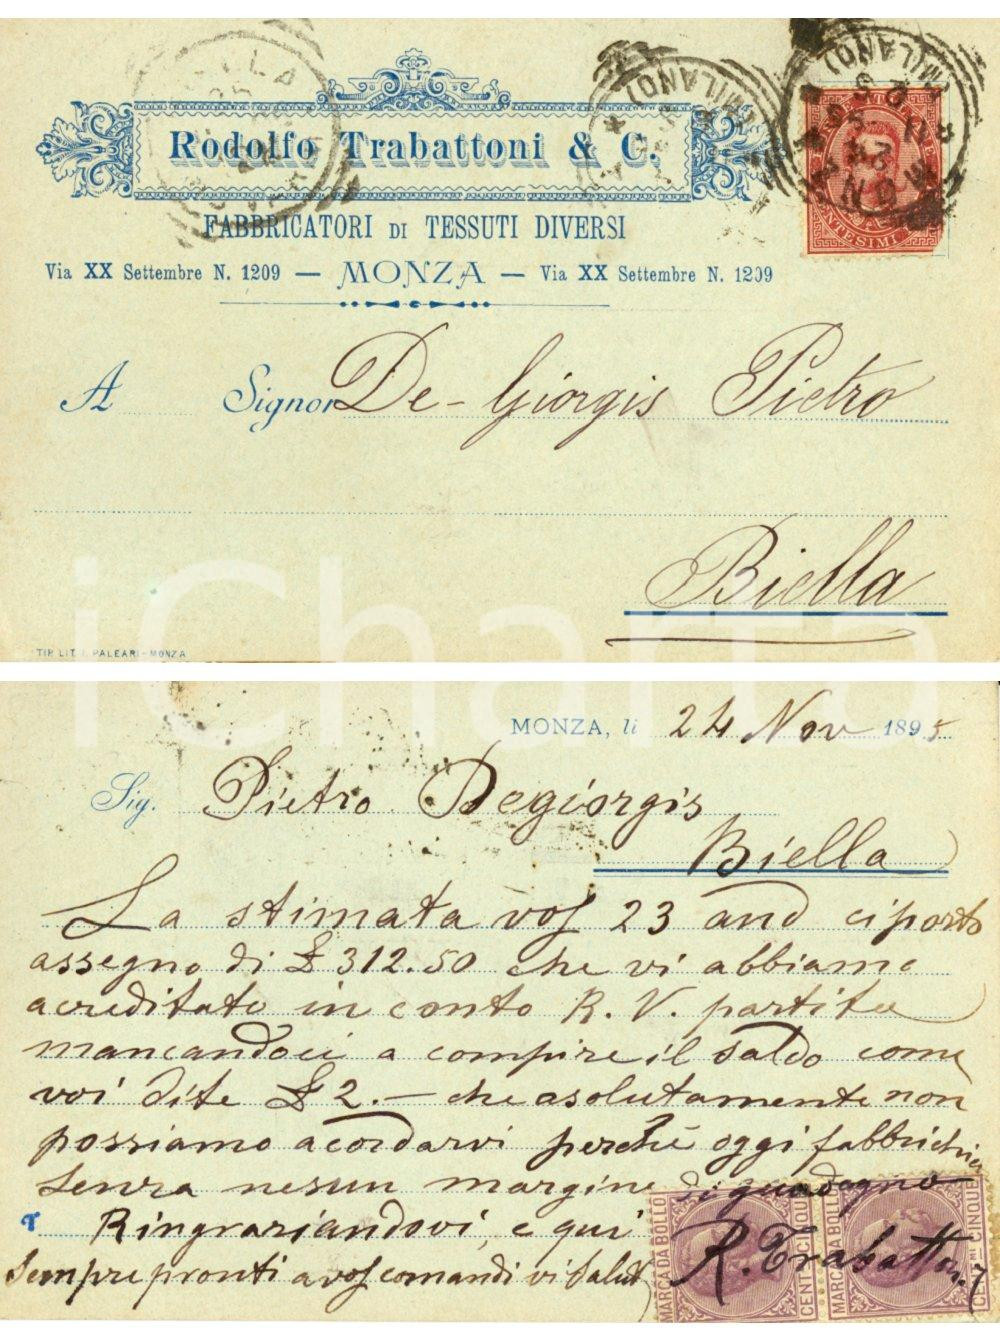 Rodolfo Trabattoni & C.
FABBRICATORI DI TESSUTI DIVERSI
Via XX Settembre N. 1209 — MONZA — Via XX Settembre N. 1209
A Signor De-Giorgis Pietro
Biella
TIP. LIT. PALEARI - MONZA
iCharta
MONZA, li 24 Nov 1895
Sig. Pietro Degiorgis
Biella
La stimata vos 23 and ci portò
assegno di £ 312.50 che vi abbiamo
acreditato in conto R. V. partita
mancandoci a compire il saldo come
voi dite £ 2.— che asolutamente non
possiamo acordarvi perchè oggi fabbrichia
senza nesun margine di guadagno
Ringraziandovi, e qui
sempre pronti a vos comandi vi salut
R. Trabattoni
MARCA DA BOLLO CENT.MI CINQUE
MARCA DA BOLLO CENT.MI CINQUE